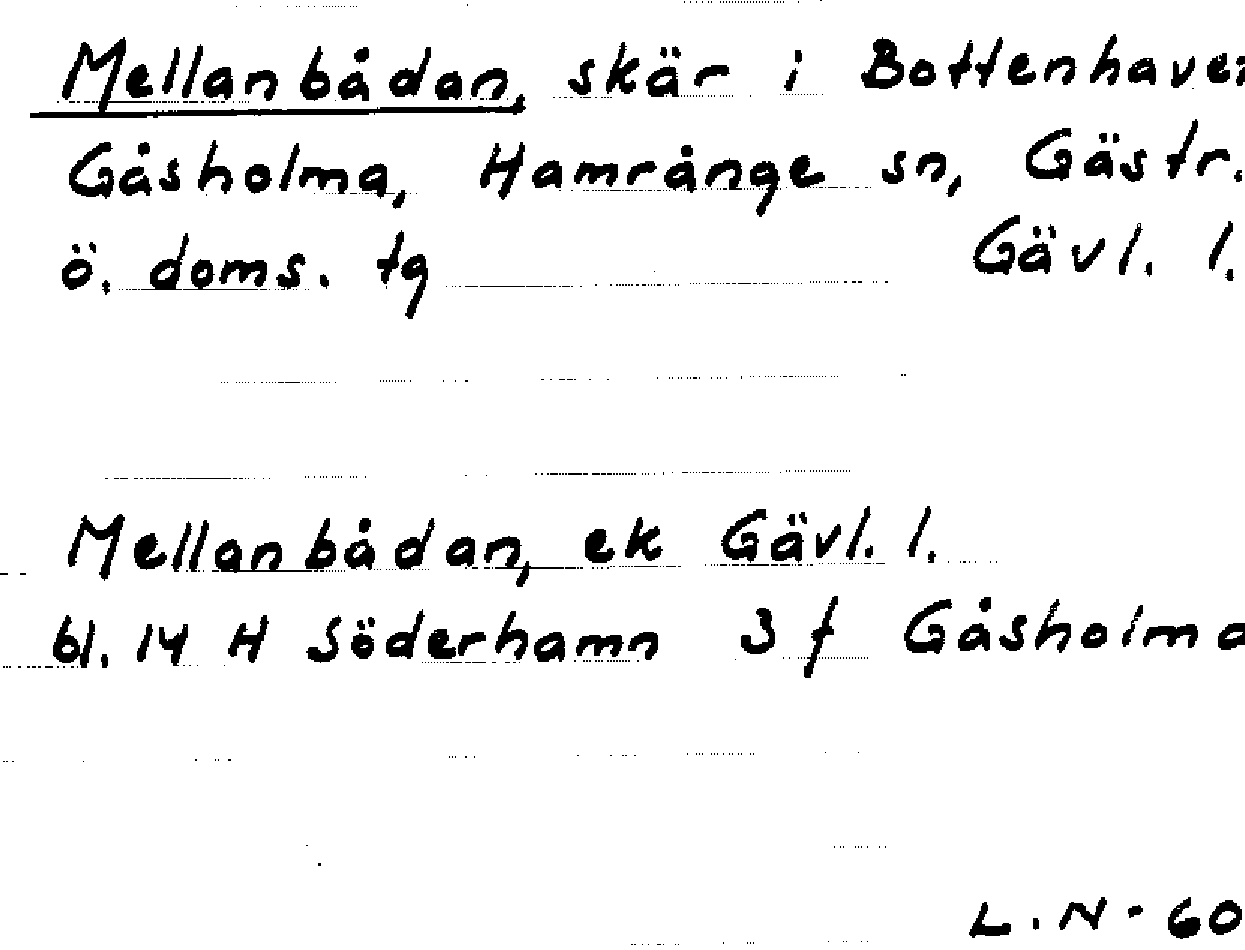 Mellanbådan, skär i Bottenhave
Gåsholma, Hamrånge sn, Gästr.
ö. doms. tg Gävl. l.
Mellanbådan, ek Gävl. l.
bl. 14 H Söderhamn 3 f Gåsholma
L.N-60